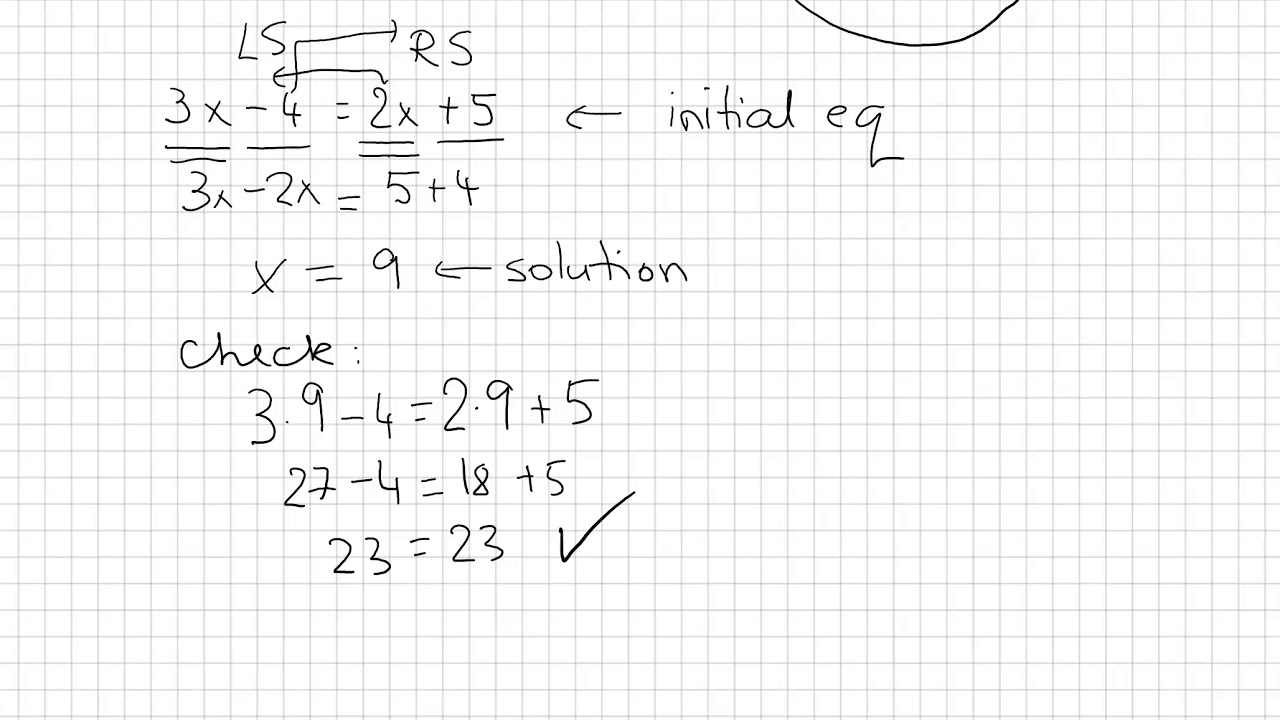 LS RS
3x - 4 = 2x + 5 ← initial eq
3x - 2x = 5 + 4
x = 9 ← solution
Check:
3.9 - 4 = 2.9 + 5
27 - 4 = 18 + 5
23 = 23 ✓